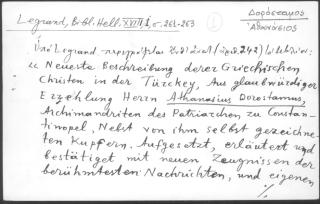 Legrand, Bibl. Hell. XVIII, 1, σ. 261-263
Δορόσταμος
Ἀθανάσιος
Ὑπὸ Legrand περιγράφεται
« Neueste Beschreibung derer Griechischen
Christen in der Türckey, Aus glaubwürdiger
Erzehlung Herrn Athanasius Dorostamus,
Archimandriten des Patriarchen zu Constan-
tinopel, Nebst von ihm selbst gezeichne-
ten Kupfern. Aufgesetzt, erläutert und
bestätiget mit neuen Zeugnissen der
berühmtesten Nachrichten, und eigenen